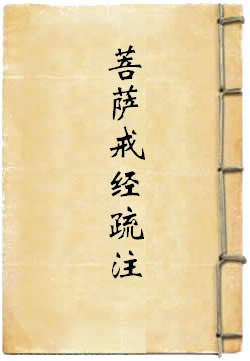 菩萨戒经疏注